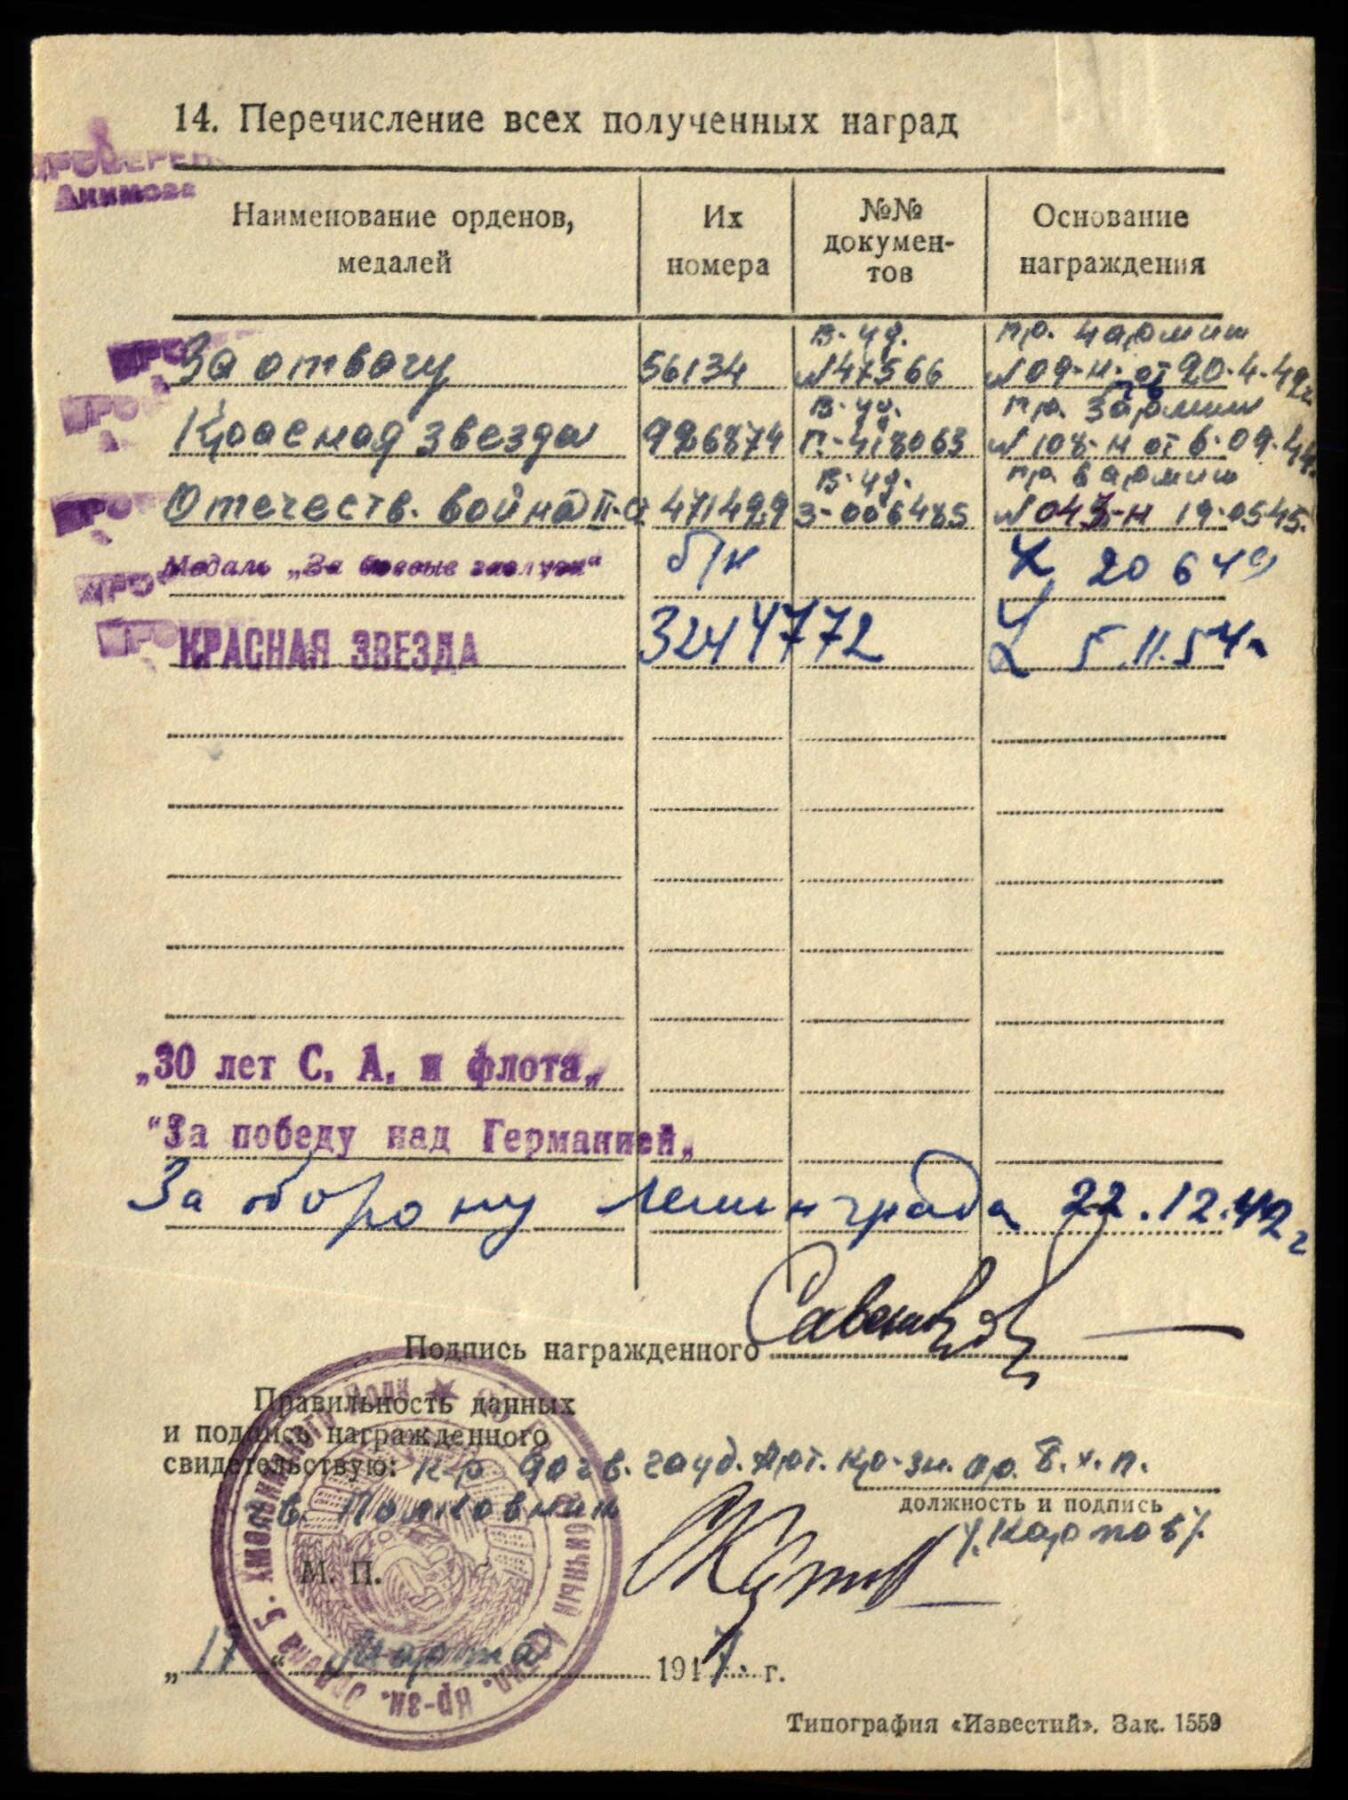 14. Перечисление всех полученных наград
ПРОВЕРЕН
Акимова
Наименование орденов,
медалей
Их
номера
№№
докумен-
тов
Основание
награждения
За отвагу 56134 В. уд. №47566 пр. 4 армии №09-н. от 20.4.42г.
Красная звезда 926874 В. уд. П-418063 №108-н от 6.09.44
Отечеств. война II-ст 471499 В. уд. З-006485 №043-н 19.0545.
Медаль „За боевые заслуги“ б/н 20 6 49
КРАСНАЯ ЗВЕЗДА 3244772 5.11.54г
„30 лет С. А. и флота„
“За победу над Германией„
За оборону Ленинграда 22.12.42г
Подпись награжденного
Правильность данных
и подпись награжденного
свидетельствую: к-р 90 гв. гауб. Арт. Кр-зн. ор. Б.Х.п.
гв. Полковник
должность и подпись
/Карпов/.
М. П.
„17“ Марта 1947. г.
Типография «Известий». Зак. 1559